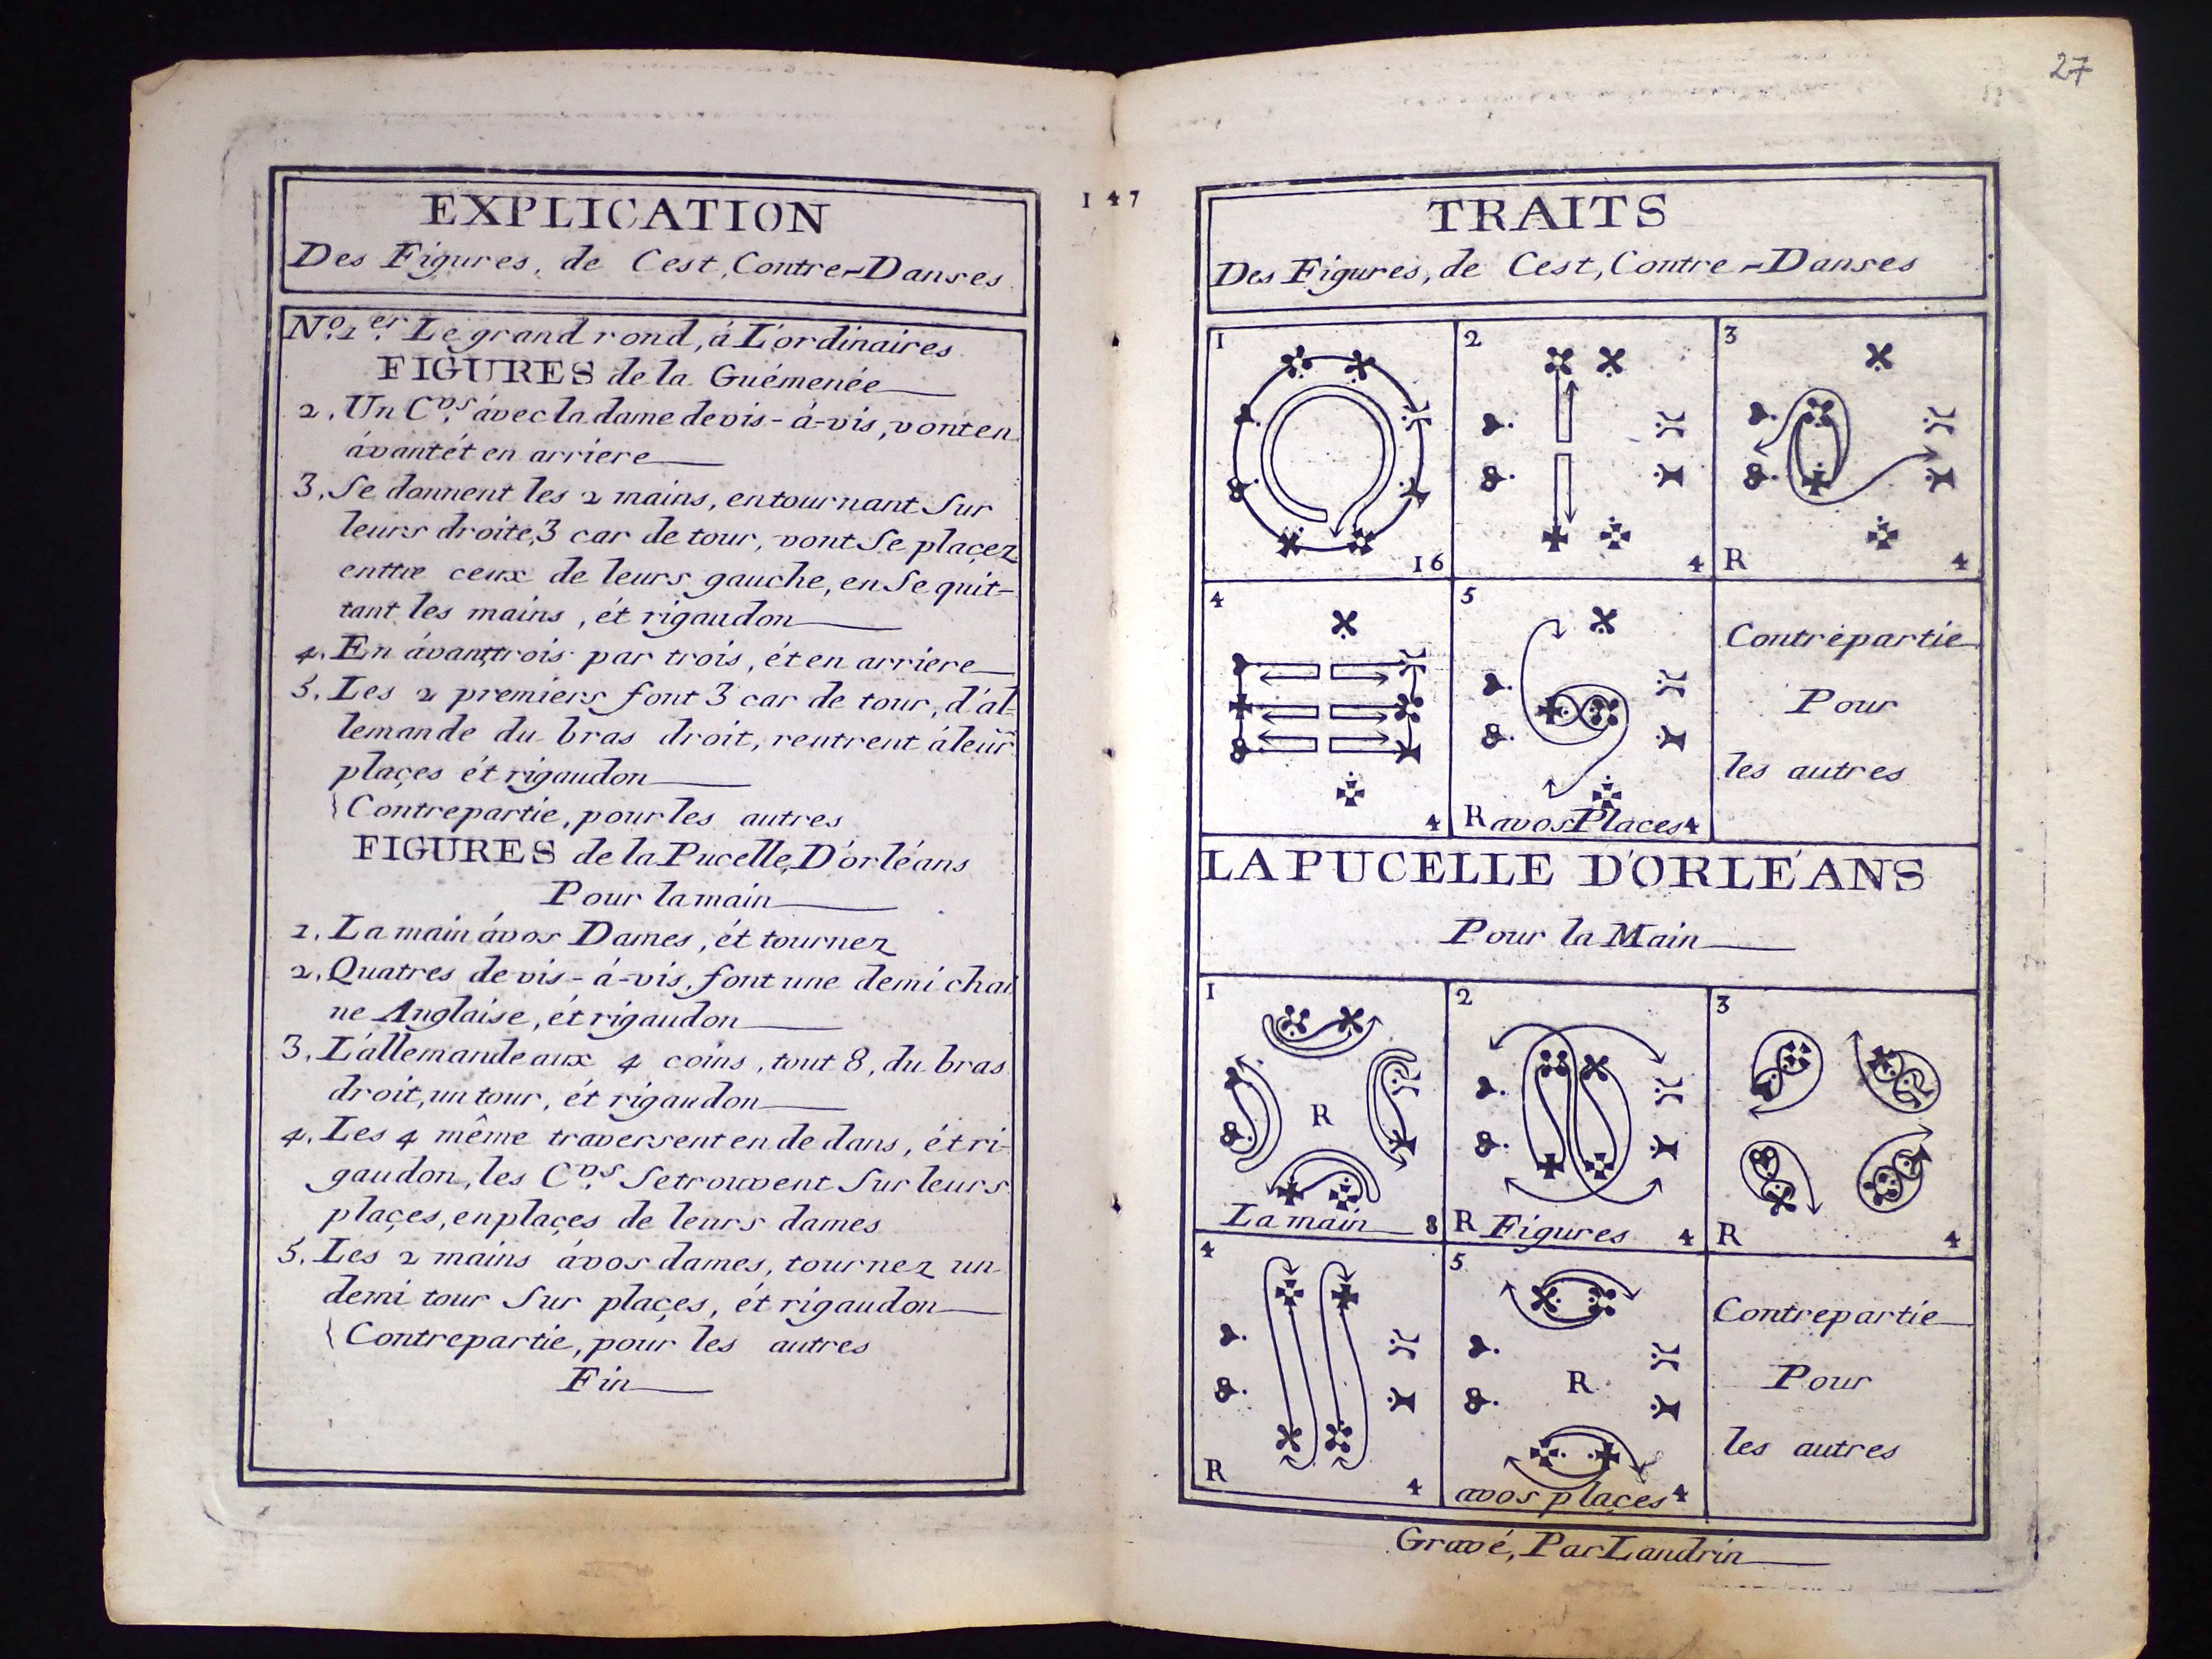 EXPLICATION
Des Figures, de Cest, Contre-Danses
No. 1er. Le grand rond, á L'ordinaires
FIGURES de la Guémenée
2. Un C.D.S ávec la dame de vis-á-vis, vont en
ávant ét en arriere
3, Se donnent les 2 mains, en tournant Sur
leurs droite, 3 car de tour, vont Se plaçez
enttre ceux de leurs gauche, en Se quit-
tant les mains, ét rigaudon
4. En ávant, trois par trois, ét en arriere
5. Les 2 premiers font 3 car de tour, d'al-
lemande du bras droit, rentrent á leur
plaçes ét rigaudon
{Contrepartie, pour les autres
FIGURES de la Pucelle, D'orléans
Pour la main
1. La main ávos Dames, ét tournez
2. Quatres de vis-á-vis, font une demi chai
ne Anglaise, ét rigaudon
3. L'allemande aux 4 coins, tout 8, du bras
droit, un tour, ét rigaudon
4. Les 4 même traversent en de dans, ét ri-
gaudon, les C.D.S Se trouvent Sur leurs
plaçes, en plaçes de leurs dames
5. Les 2 mains ávos dames, tournez un
demi tour Sur plaçes, ét rigaudon
{Contrepartie, pour les autres
Fin
147
27
TRAITS
Des Figures, de Cest, Contre-Danses
1
16
2
4
3
R
4
4
4
5
R avos Places 4
Contrepartie
Pour
les autres
LA PUCELLE D'ORLÉANS
Pour la Main
1
R
La main 8
2
R Figures 4
3
R
4
4
R
4
5
R
avos plaçes 4
Contrepartie
Pour
les autres
Gravé, Par Landrin